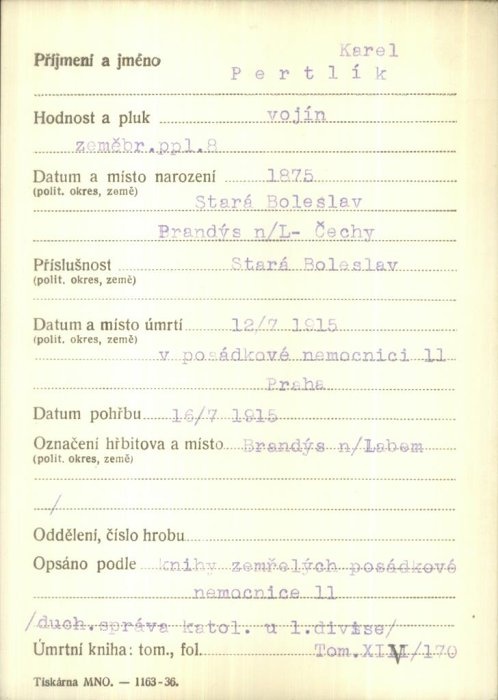 Karel
Příjmení a jméno Pertlík
Hodnost a pluk vojín
zeměbr.ppl.8
Datum a místo narození 1875
(polit. okres, země)
Stará Boleslav
Brandýs n/L- Čechy
Příslušnost Stará Boleslav
(polit. okres, země)
Datum a místo úmrtí 12/7 1915
(polit. okres, země)
v posádkové nemocnici 11
Praha
Datum pohřbu 16/7 1915
Označení hřbitova a místo Brandýs n/Labem
(polit. okres, země)
/
Oddělení, číslo hrobu
Opsáno podle knihy zemřelých posádkové
nemocnice 11
/duch.správa katol. u 1.divise/
Úmrtní kniha: tom., fol. Tom. /170
Tiskárna MNO. — 1163-36.